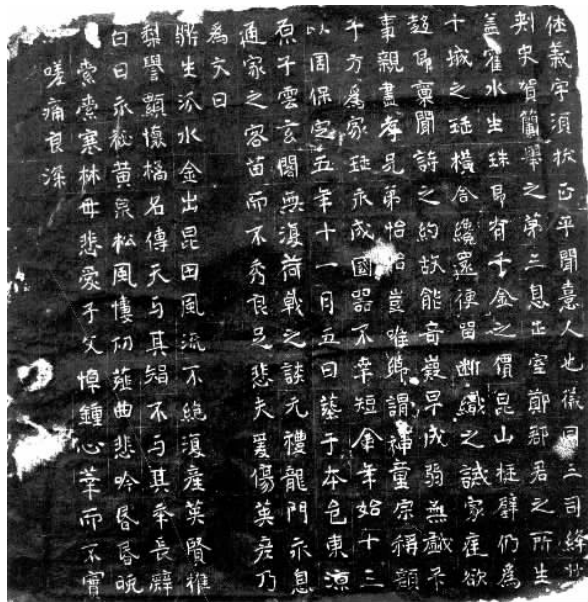 義字須拔正平聞憙人也儀同三司絳州
刺史賀蘭之第三息出室鄭郡君之所生
蓋水生珠有千金之價昆山璧仍為
十城之橫含還留斷織之誡家欲
趍稟聞詩之約故能奇嶷早成弱不
事親盡孝兄弟怡怡豈唯鄉謂神童宗稱額
千方爲家永成國器不幸短命年始十三
以周保定五年十一月五日葬于本邑東涼
原子雲玄閣無復荷戟之談元禮龍門永息
通家之客苗而不秀良足悲夫爰傷英彥乃
爲文曰
鼎生水金出昆田風流不絕復產英賢推
梨譽顯懷橘名傳天与其智不与其年長辭
白日永秘黃泉松風悽切薤曲悲吟昏昏晼
索索寒林母悲愛子父悼鍾心華而不實
嗟痛良深